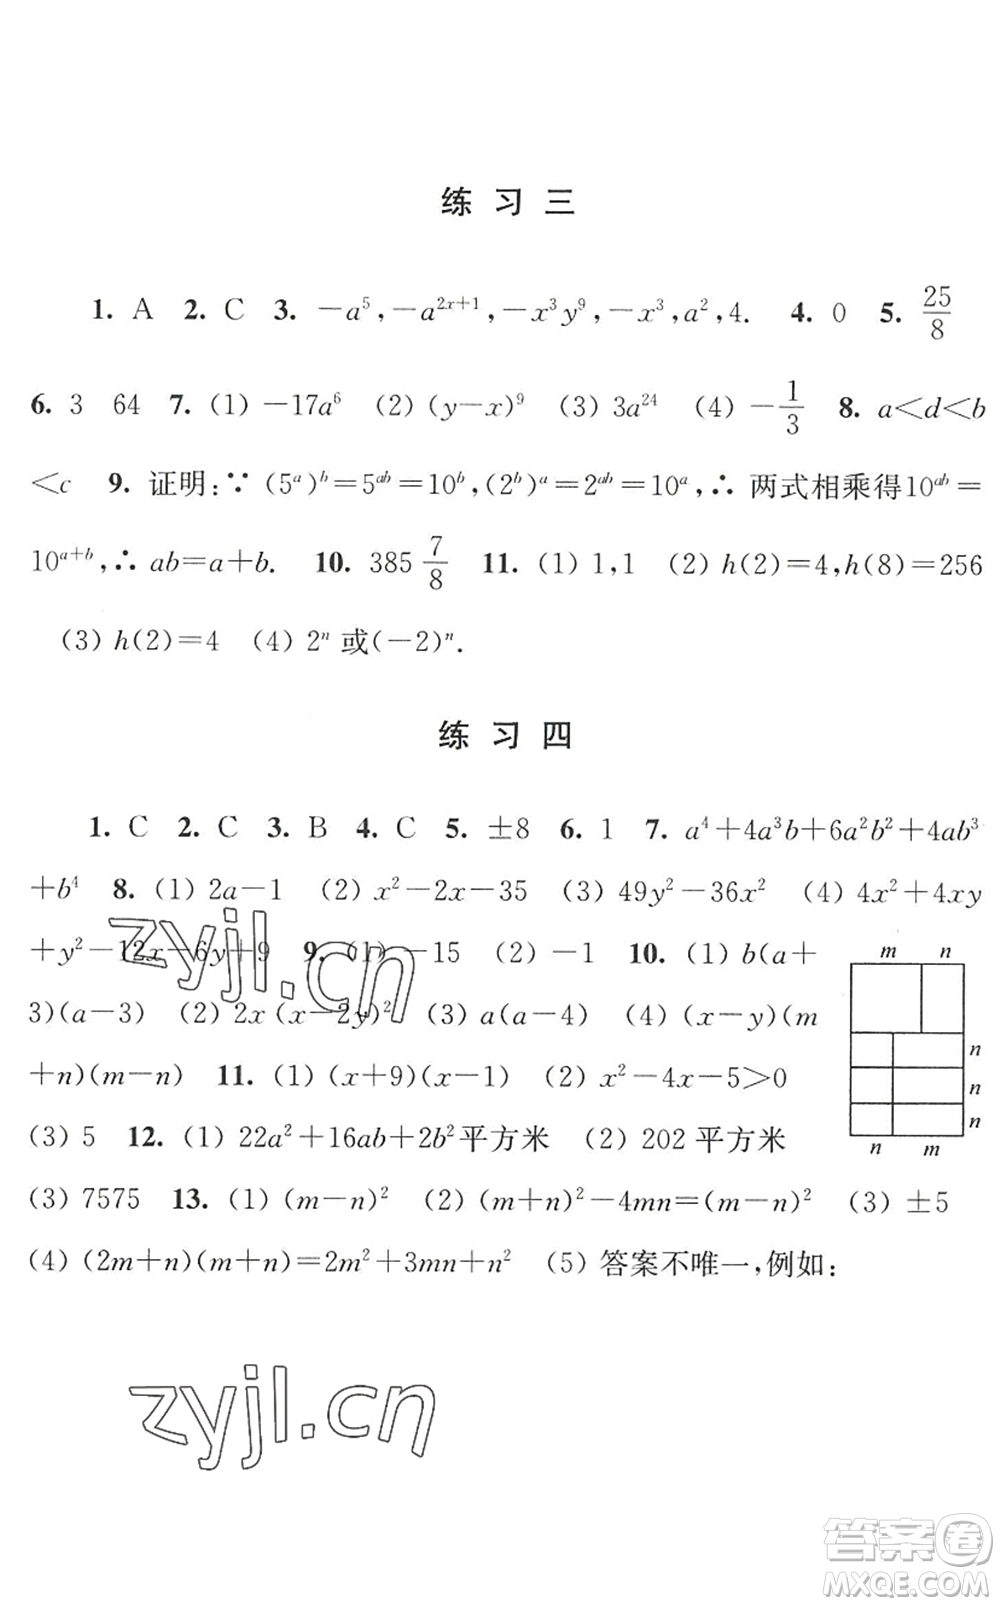 练 习 三
1. A 2. C 3. －a⁵,－a²ˣ⁺¹,－x³y⁹,－x³,a²,4. 4. 0 5. 25/8
6. 3 64 7. (1) －17a⁶ (2) (y－x)⁹ (3) 3a²⁴ (4) －1/3 8. a<d<b
<c 9. 证明:∵ (5ᵃ)ᵇ＝5ᵃᵇ＝10ᵇ,(2ᵇ)ᵃ＝2ᵃᵇ＝10ᵃ,∴ 两式相乘得10ᵃᵇ＝
10ᵃ⁺ᵇ,∴ ab＝a＋b. 10. 385 7/8 11. (1) 1,1 (2) h(2)＝4,h(8)＝256
(3) h(2)＝4 (4) 2ⁿ 或(－2)ⁿ.
练 习 四
1. C 2. C 3. B 4. C 5. ±8 6. 1 7. a⁴＋4a³b＋6a²b²＋4ab³
＋b⁴ 8. (1) 2a－1 (2) x²－2x－35 (3) 49y²－36x² (4) 4x²＋4xy
＋y²－12x－6y＋9 9. (1) －15 (2) －1 10. (1) b(a＋
3)(a－3) (2) 2x(x－2y)² (3) a(a－4) (4) (x－y)(m
＋n)(m－n) 11. (1) (x＋9)(x－1) (2) x²－4x－5>0
(3) 5 12. (1) 22a²＋16ab＋2b²平方米 (2) 202 平方米
(3) 7575 13. (1) (m－n)² (2) (m＋n)²－4mn＝(m－n)² (3) ±5
(4) (2m＋n)(m＋n)＝2m²＋3mn＋n² (5) 答案不唯一,例如:
m n
n
n
n
n m
zyjl.cn
zyjl.cn
答案卷
MXQE.COM